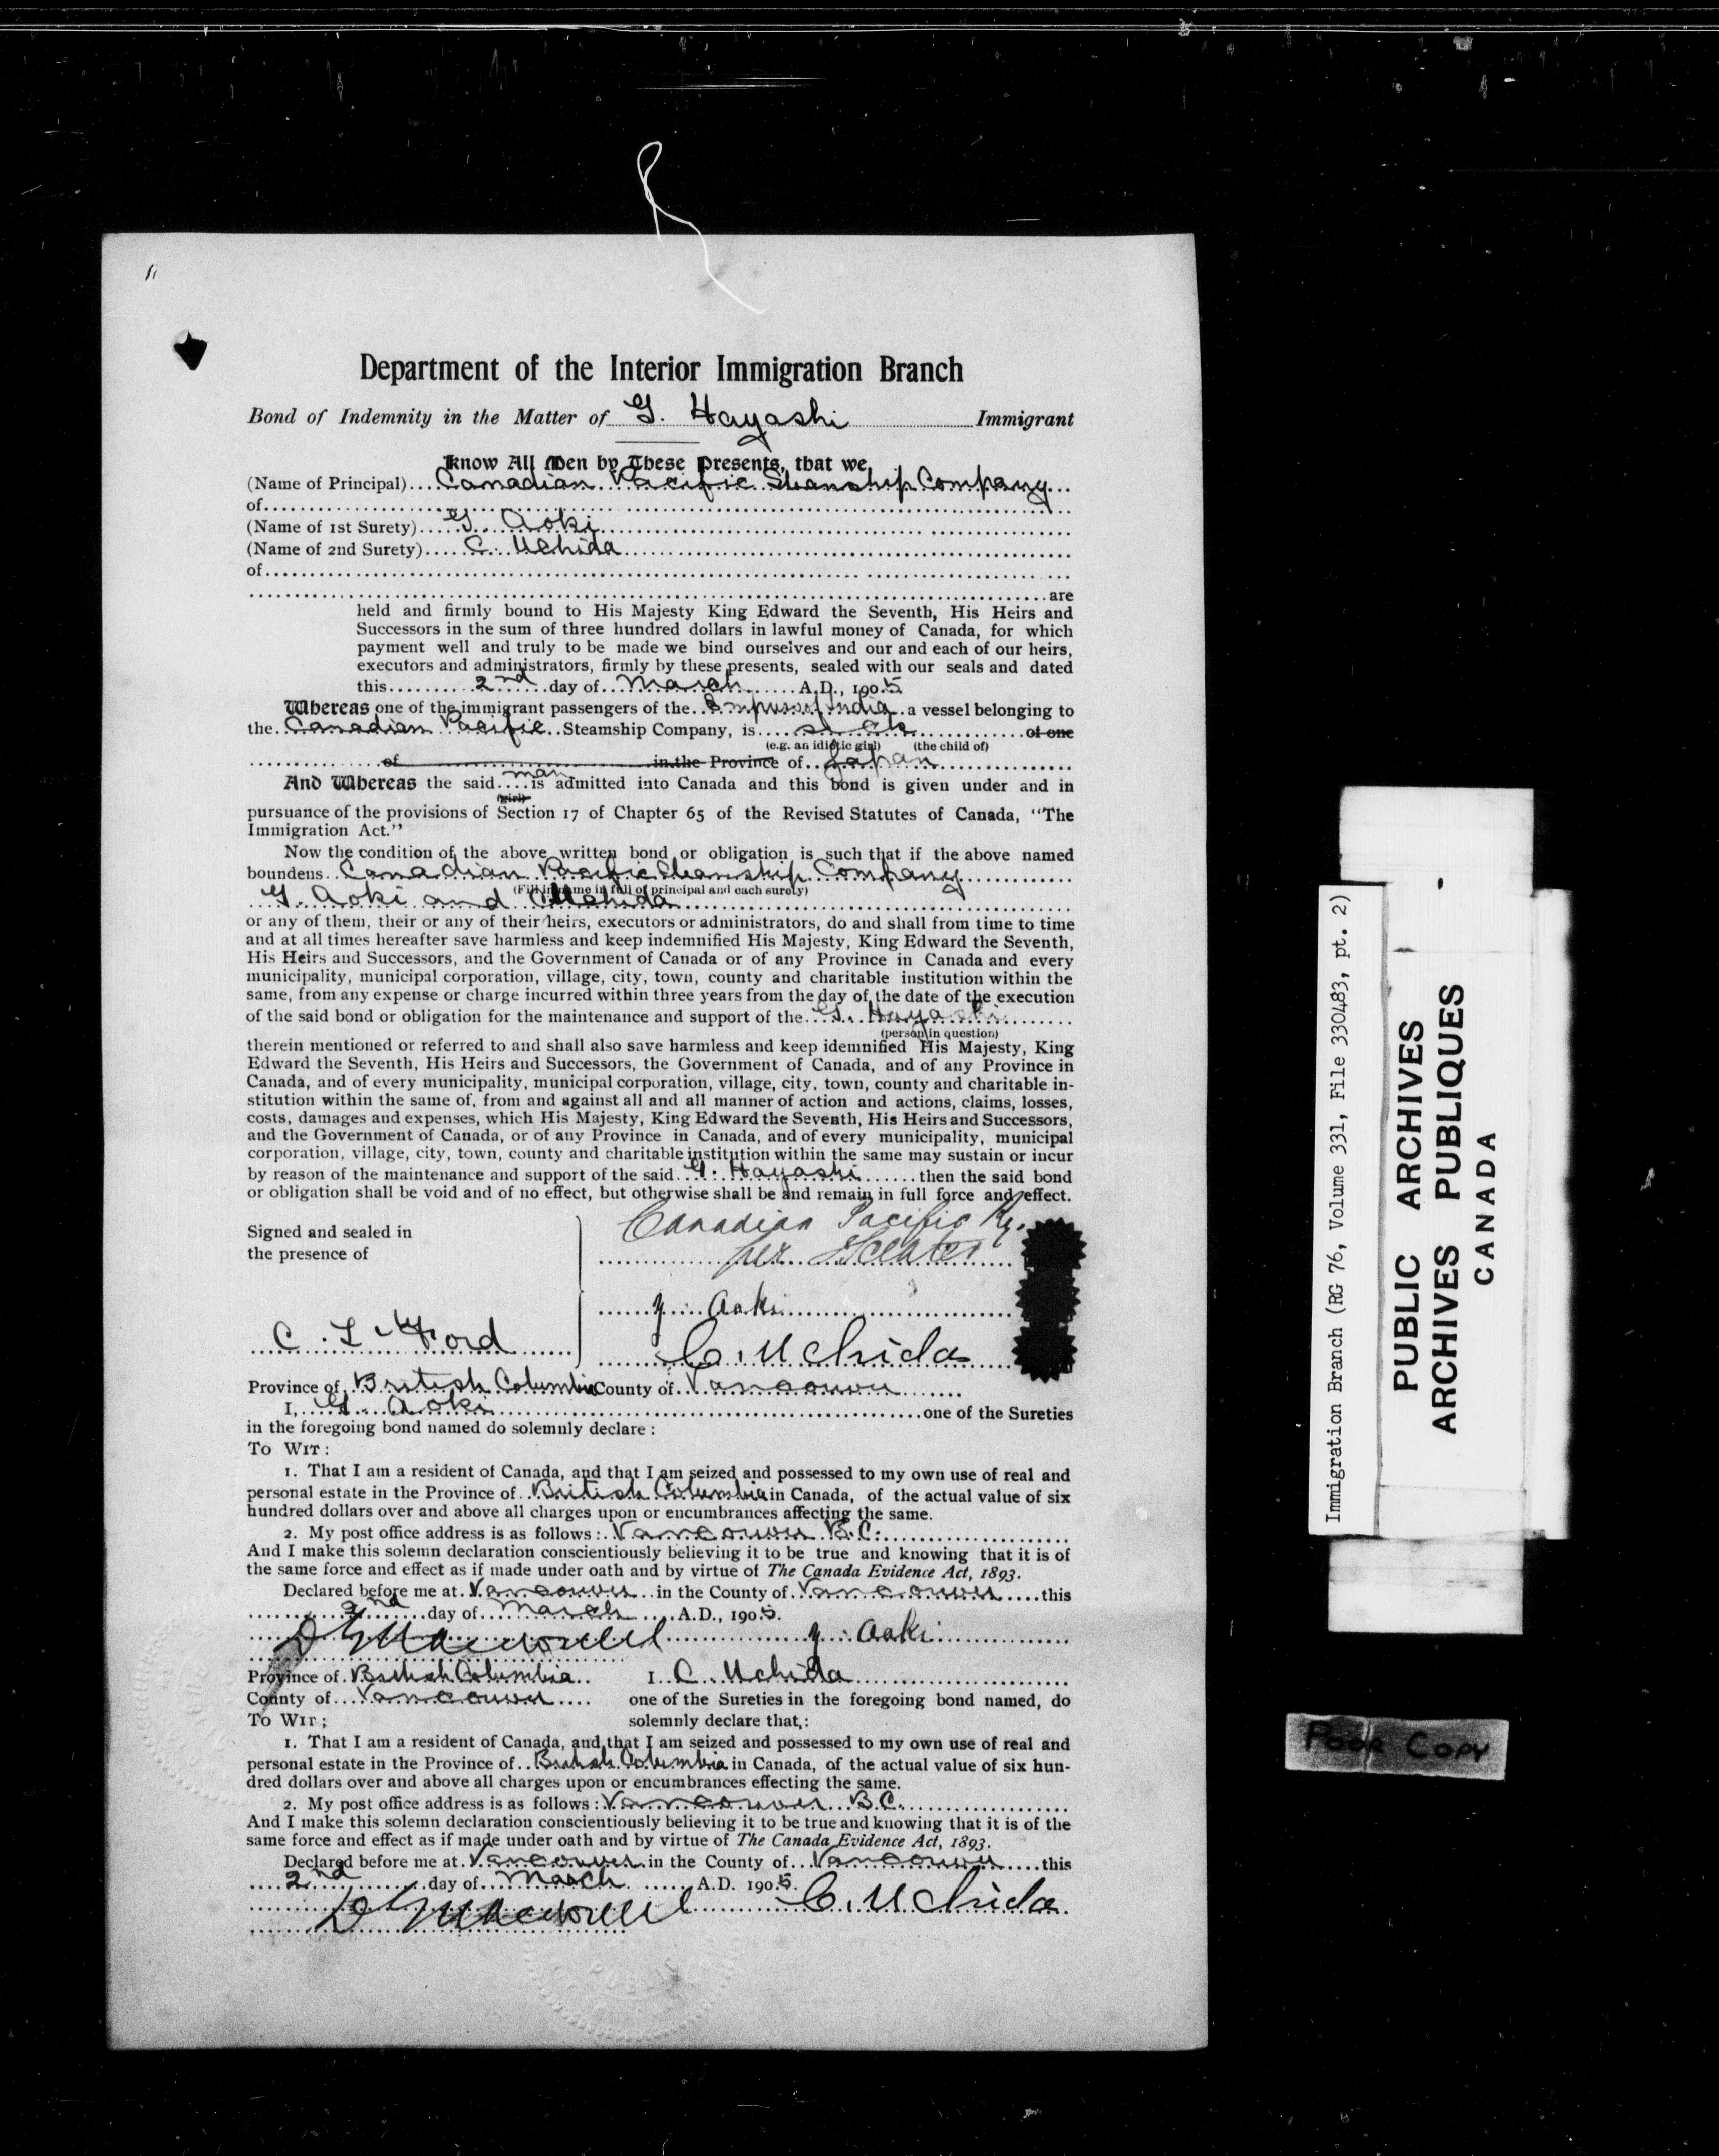 Department of the Interior Immigration Branch
Bond of Indemnity in the Matter of G. Hayashi Immigrant
Know All Men by These Presents, that we
(Name of Principal) Canadian Pacific Steamship Company
of
(Name of 1st Surety) G. Aoki
(Name of 2nd Surety) C. Uchida
of
are
held and firmly bound to His Majesty King Edward the Seventh, His Heirs and
Successors in the sum of three hundred dollars in lawful money of Canada, for which
payment well and truly to be made we bind ourselves and our and each of our heirs,
executors and administrators, firmly by these presents, sealed with our seals and dated
this 2nd day of March A.D., 1905
Whereas one of the immigrant passengers of the Empress of India a vessel belonging to
the Canadian Pacific Steamship Company, is sick of one
(e.g. an idiotic girl) (the child of)
of in the Province of Japan
And Whereas the said man is admitted into Canada and this bond is given under and in
(girl)
pursuance of the provisions of Section 17 of Chapter 65 of the Revised Statutes of Canada, "The
Immigration Act."
Now the condition of the above written bond or obligation is such that if the above named
boundens Canadian Pacific Steamship Company
(Fill in name in full of principal and each surety)
G. Aoki and C Uchida
or any of them, their or any of their heirs, executors or administrators, do and shall from time to time
and at all times hereafter save harmless and keep indemnified His Majesty, King Edward the Seventh,
His Heirs and Successors, and the Government of Canada or of any Province in Canada and every
municipality, municipal corporation, village, city, town, county and charitable institution within the
same, from any expense or charge incurred within three years from the day of the date of the execution
of the said bond or obligation for the maintenance and support of the G. Hayashi
(person in question)
therein mentioned or referred to and shall also save harmless and keep idemnified His Majesty, King
Edward the Seventh, His Heirs and Successors, the Government of Canada, and of any Province in
Canada, and of every municipality, municipal corporation, village, city, town, county and charitable in-
stitution within the same of, from and against all and all manner of action and actions, claims, losses,
costs, damages and expenses, which His Majesty, King Edward the Seventh, His Heirs and Successors,
and the Government of Canada, or of any Province in Canada, and of every municipality, municipal
corporation, village, city, town, county and charitable institution within the same may sustain or incur
by reason of the maintenance and support of the said G. Hayashi then the said bond
or obligation shall be void and of no effect, but otherwise shall be and remain in full force and effect.
Signed and sealed in
the presence of
Canadian Pacific Ry.
per
y. Aoki
C. L. Ford
C. Uchida
Province of British Columbia County of Vancouver
I, G. Aoki one of the Sureties
in the foregoing bond named do solemnly declare :
To Wit :
1. That I am a resident of Canada, and that I am seized and possessed to my own use of real and
personal estate in the Province of British Columbia in Canada, of the actual value of six
hundred dollars over and above all charges upon or encumbrances affecting the same.
2. My post office address is as follows : Vancouver B.C.
And I make this solemn declaration conscientiously believing it to be true and knowing that it is of
the same force and effect as if made under oath and by virtue of The Canada Evidence Act, 1893.
Declared before me at Vancouver in the County of Vancouver this
2nd day of March A.D., 1905.
y. Aoki
Province of British Columbia I C. Uchida
County of Vancouver one of the Sureties in the foregoing bond named, do
To Wit ; solemnly declare that, :
1. That I am a resident of Canada, and that I am seized and possessed to my own use of real and
personal estate in the Province of British Columbia in Canada, of the actual value of six hun-
dred dollars over and above all charges upon or encumbrances effecting the same.
2. My post office address is as follows : Vancouver B.C.
And I make this solemn declaration conscientiously believing it to be true and knowing that it is of the
same force and effect as if made under oath and by virtue of The Canada Evidence Act, 1893.
Declared before me at Vancouver in the County of Vancouver this
2nd day of March A.D. 1905.
C. Uchida
PUBLIC
Immigration Branch (RG 76, Volume 331, File 330483, pt. 2)
PUBLIC ARCHIVES
ARCHIVES PUBLIQUES
CANADA
Poor Copy